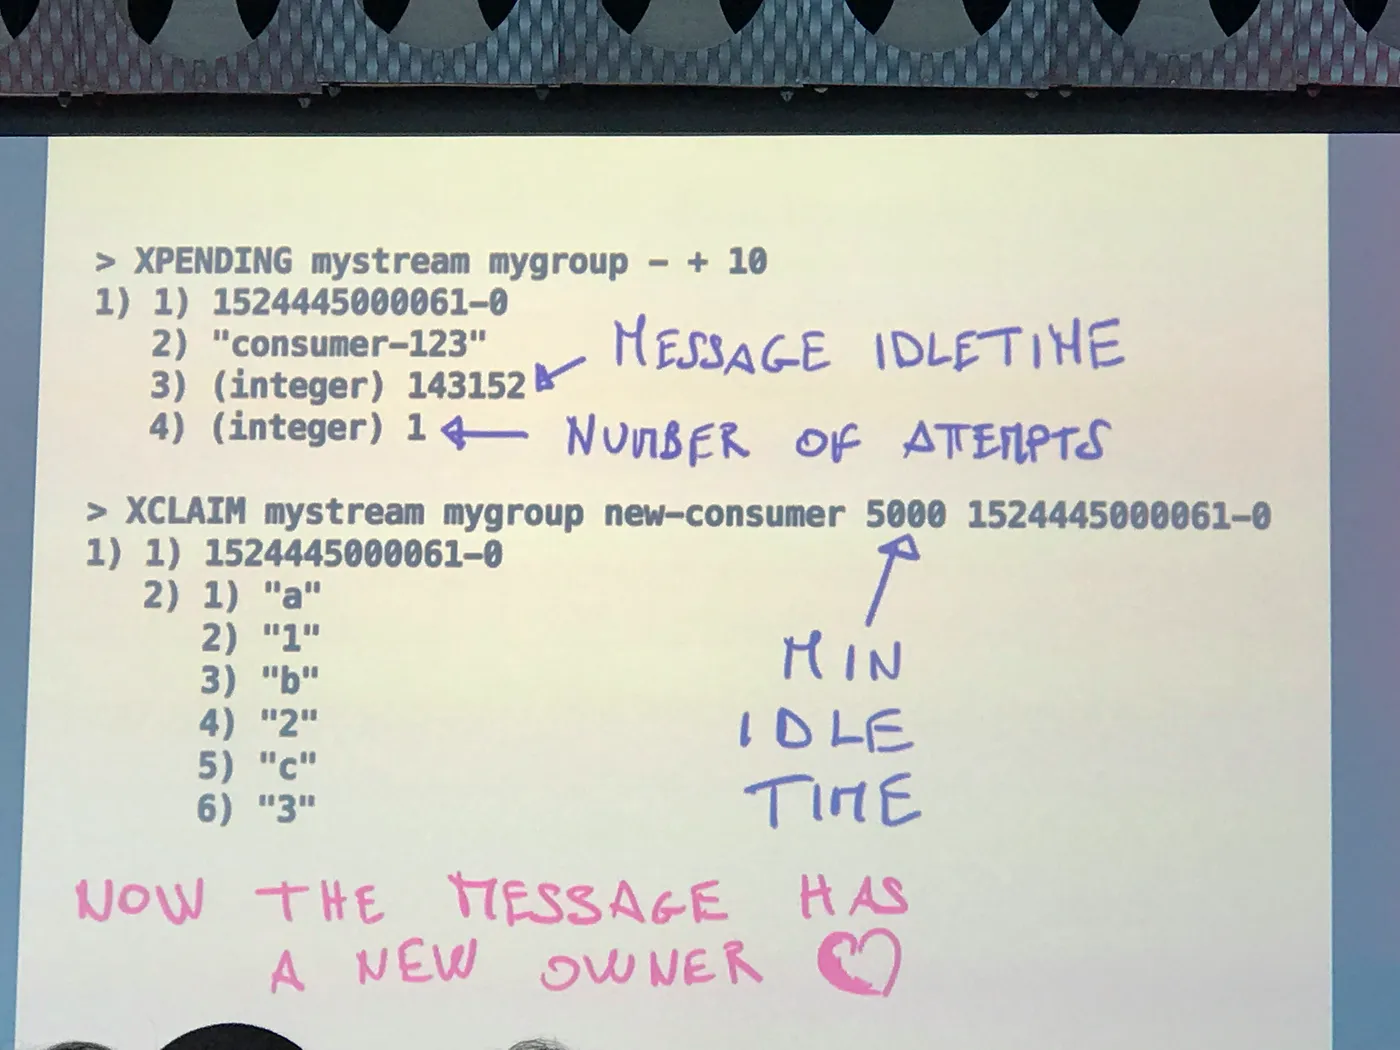 > XPENDING mystream mygroup - + 10
1) 1) 1524445000061-0
2) "consumer-123"
MESSAGE IDLETIME
3) (integer) 143152
4) (integer) 1
NUMBER OF ATTEMPTS
> XCLAIM mystream mygroup new-consumer 5000 1524445000061-0
1) 1) 1524445000061-0
2) 1) "a"
2) "1"
3) "b"
4) "2"
5) "c"
6) "3"
MIN
IDLE
TIME
NOW THE MESSAGE HAS
A NEW OWNER